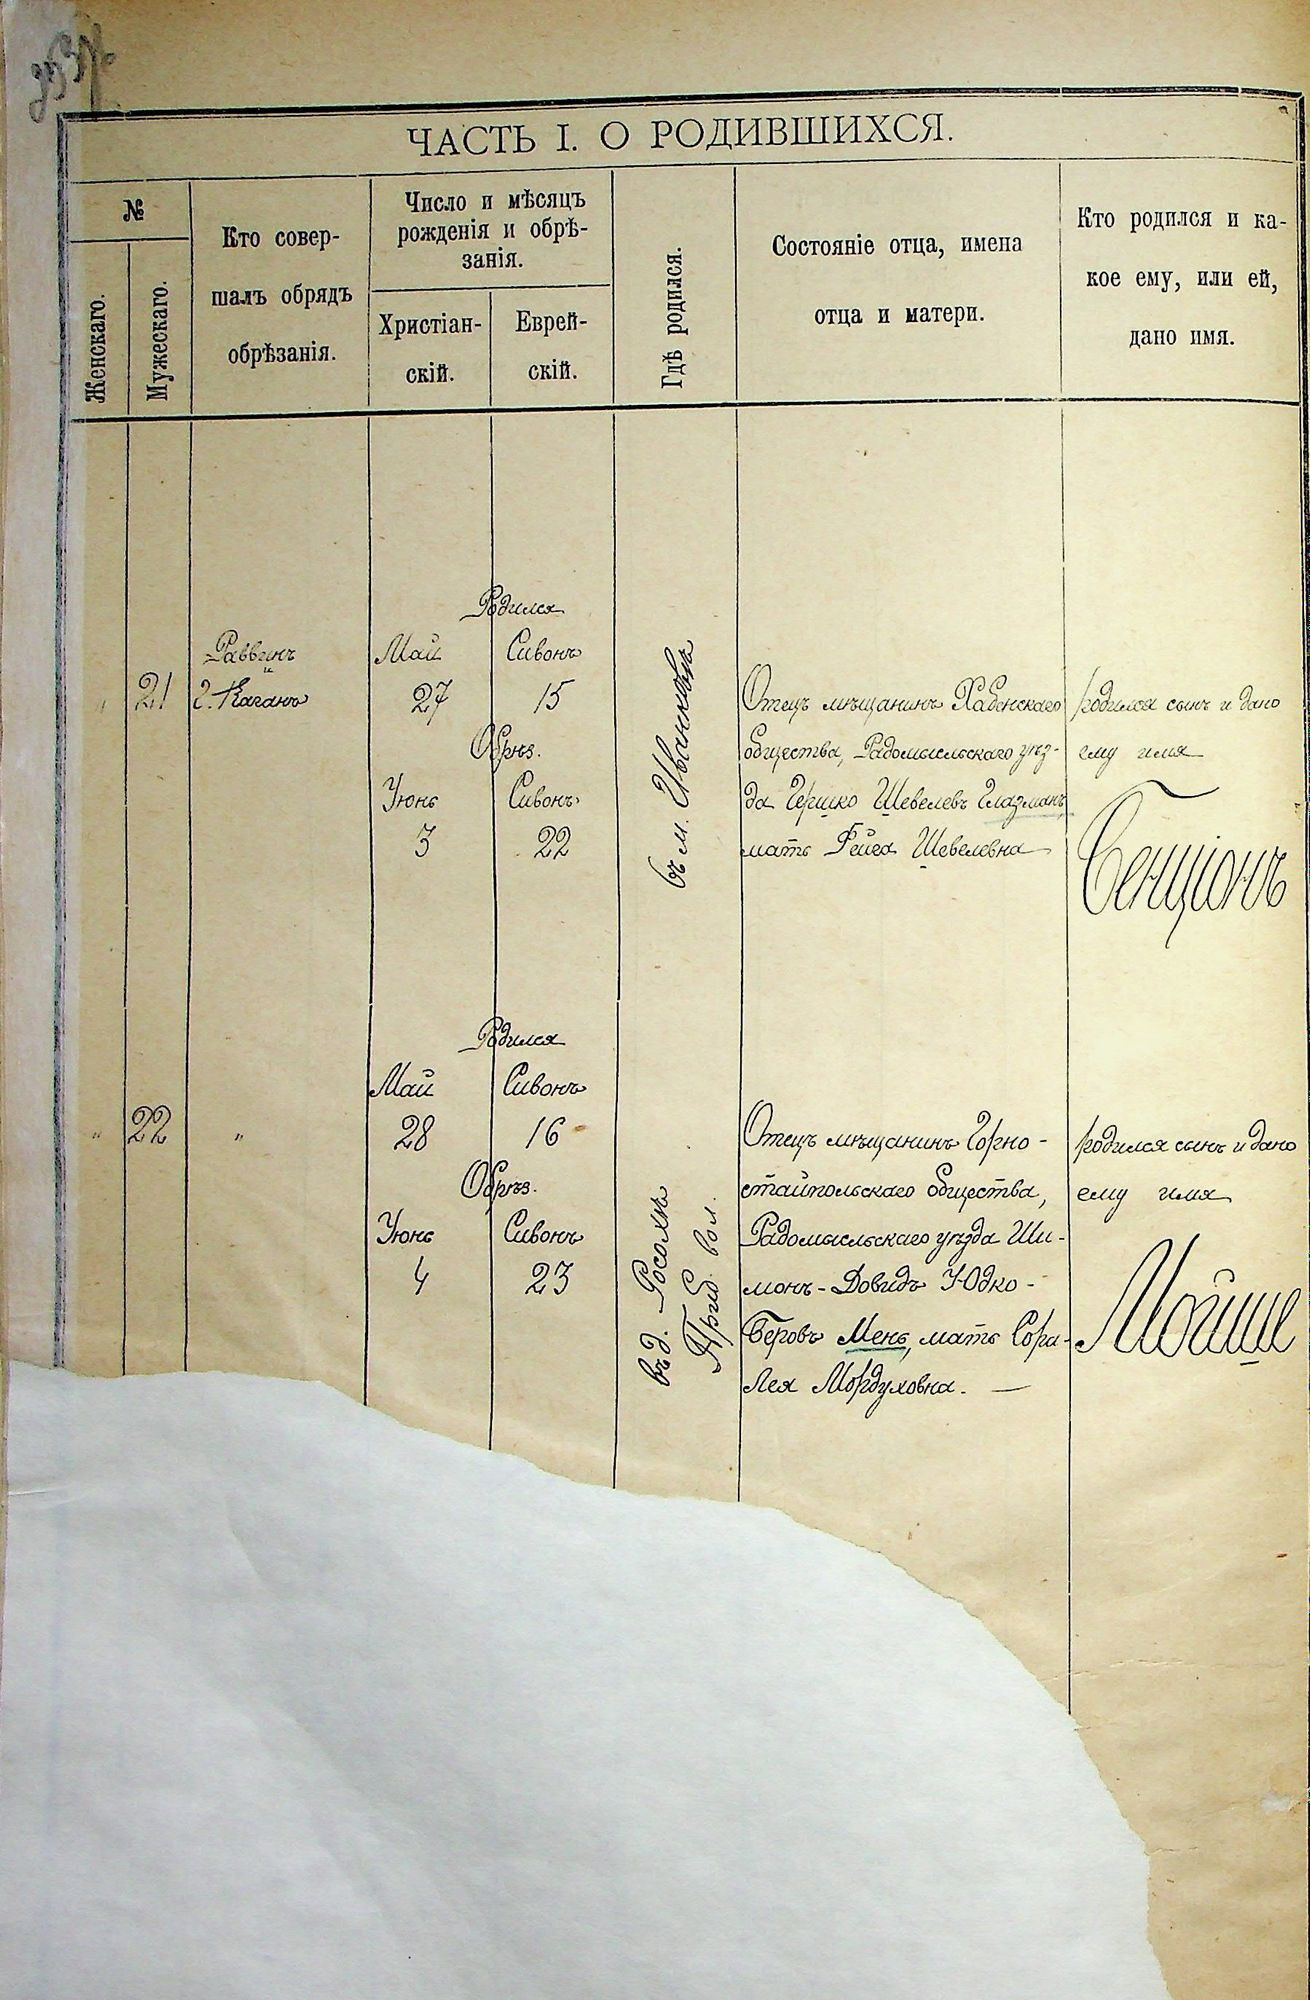 ЧАСТЬ I. О РОДИВШИХСЯ.
№
Женскаго.
Мужескаго.
Кто совер-
шалъ обрядъ
обрѣзанія.
Число и мѣсяцъ
рожденія и обрѣ-
занія.
Христіан-
скій.
Еврей-
скій.
Гдѣ родился.
Состояніе отца, имена
отца и матери.
Кто родился и ка-
кое ему, или ей,
дано имя.
„ 21
Раввинъ
Г. Каганъ
Родился
Май Сивонъ
27 15
Обрѣз.
Іюнь Сивонъ
3 22
въ м. Иванковѣ
Отецъ мѣщанинъ Хабенскаго
общества, Радомысльскаго уѣз-
да Гершко Шевелевъ Глазманъ,
мать Фейга Шевелевна
родился сынъ и дано
ему имя
Бенціонъ
„ 22 „
Родился
Май Сивонъ
28 16
Обрѣз.
Іюнь Сивонъ
4 23
въ д. Росохѣ
вол.
Отецъ мѣщанинъ Горно-
стайпольскаго общества,
Радомысльскаго уѣзда Ши-
монъ-Довидъ Іодко-
Беровъ Мень, мать Сора-
Лея Мордуховна. —
родился сынъ и дано
ему имя
Мойше